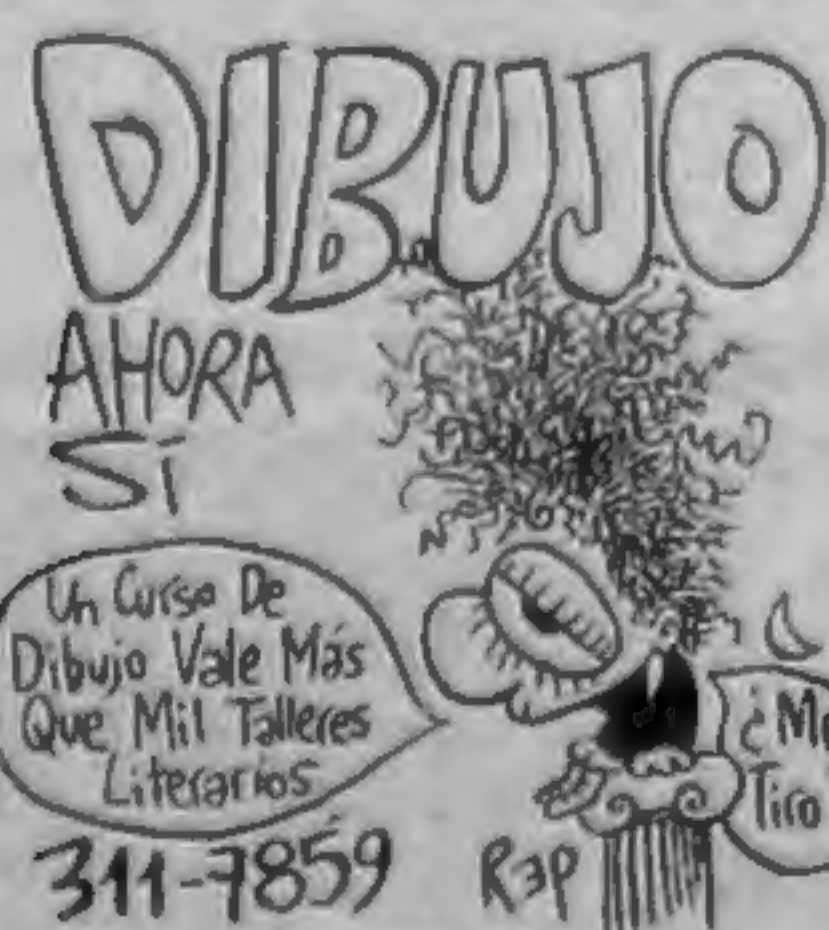 DIBUJO
AHORA
SÍ
Un Curso De
Dibujo Vale Más
Que Mil Talleres
Literarios
311-7859
Rep
Tiro